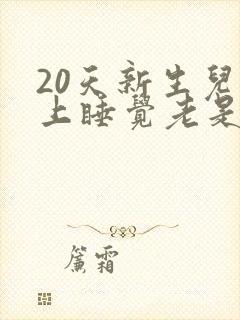 20天新生兒
上睡覺老是
簾霜